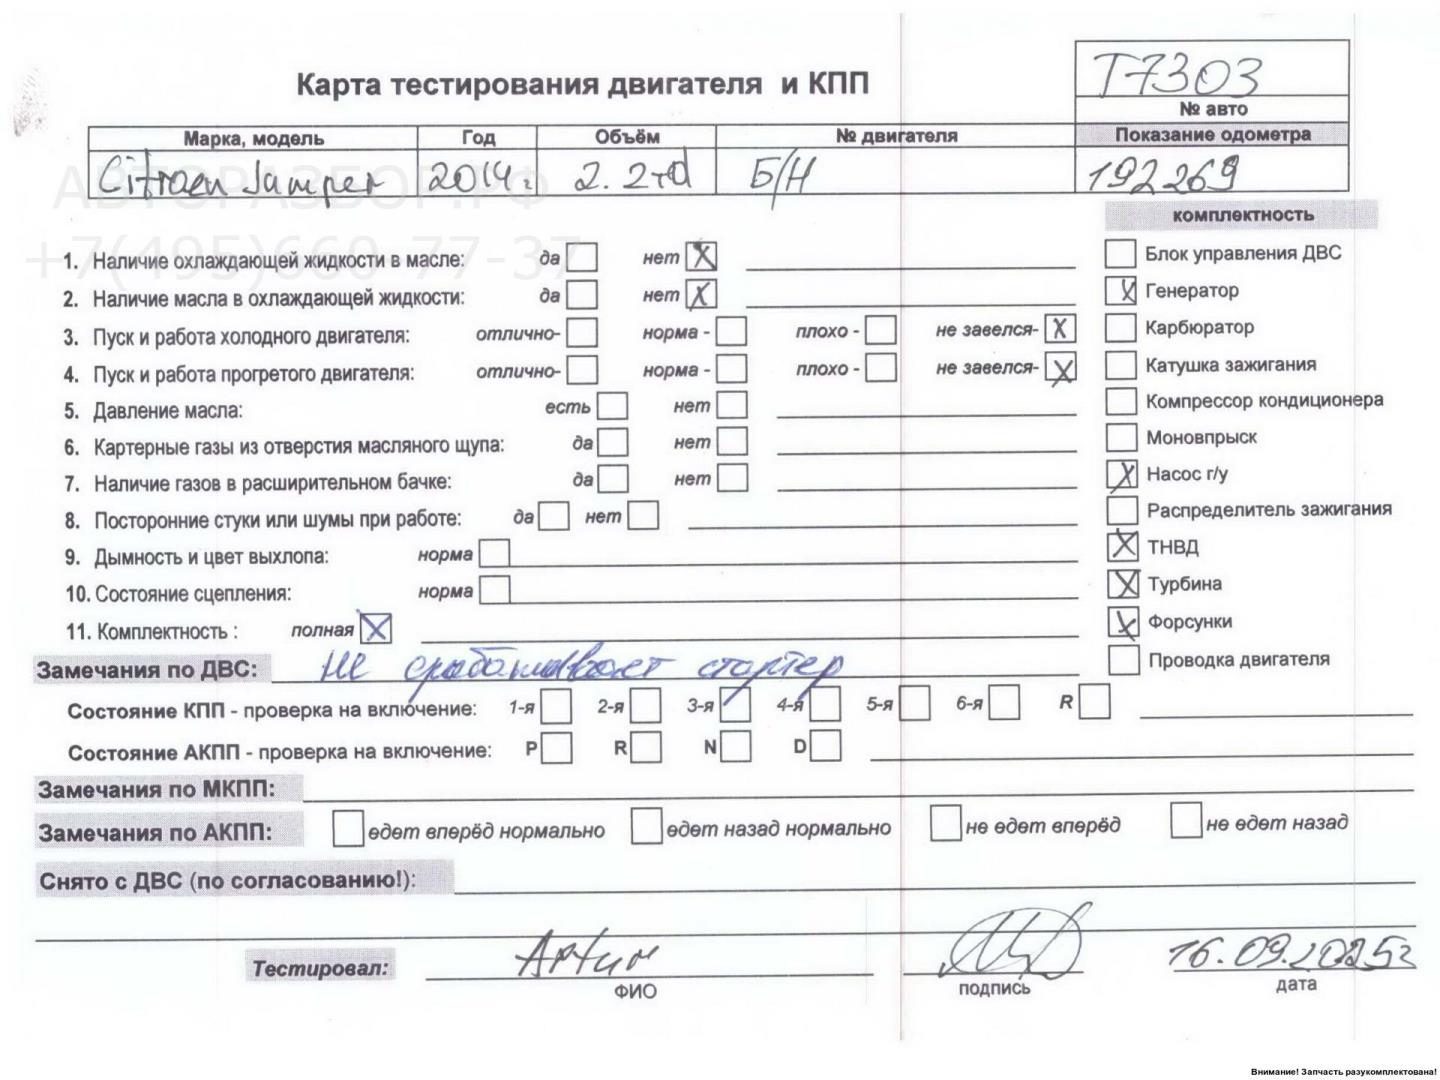 Т7303
Карта тестирования двигателя и КПП
№ авто
Марка, модель Год Объём № двигателя Показание одометра
Citroen Jumper 2014г. 2.2td Б/Н 192269
АВТОРАЗБОР.РФ
+7(495)660-77-37
комплектность
1. Наличие охлаждающей жидкости в масле: да нет X
Блок управления ДВС
2. Наличие масла в охлаждающей жидкости: да нет X
Генератор X
3. Пуск и работа холодного двигателя: отлично- норма - плохо - не завелся- X
Карбюратор
4. Пуск и работа прогретого двигателя: отлично- норма - плохо - не завелся- X
Катушка зажигания
5. Давление масла: есть нет
Компрессор кондиционера
6. Картерные газы из отверстия масляного щупа: да нет
Моновпрыск
7. Наличие газов в расширительном бачке: да нет
Насос г/у X
8. Посторонние стуки или шумы при работе: да нет
Распределитель зажигания
9. Дымность и цвет выхлопа: норма
ТНВД X
10. Состояние сцепления: норма
Турбина X
11. Комплектность : полная X
Форсунки X
Замечания по ДВС: не срабатывает стартер
Проводка двигателя
Состояние КПП - проверка на включение: 1-я 2-я 3-я 4-я 5-я 6-я R
Состояние АКПП - проверка на включение: P R N D
Замечания по МКПП:
Замечания по АКПП: едет вперёд нормально едет назад нормально не едет вперёд не едет назад
Снято с ДВС (по согласованию!):
Тестировал: Артur 16.09.2025г
ФИО подпись дата
Внимание! Запчасть разукомплектована!